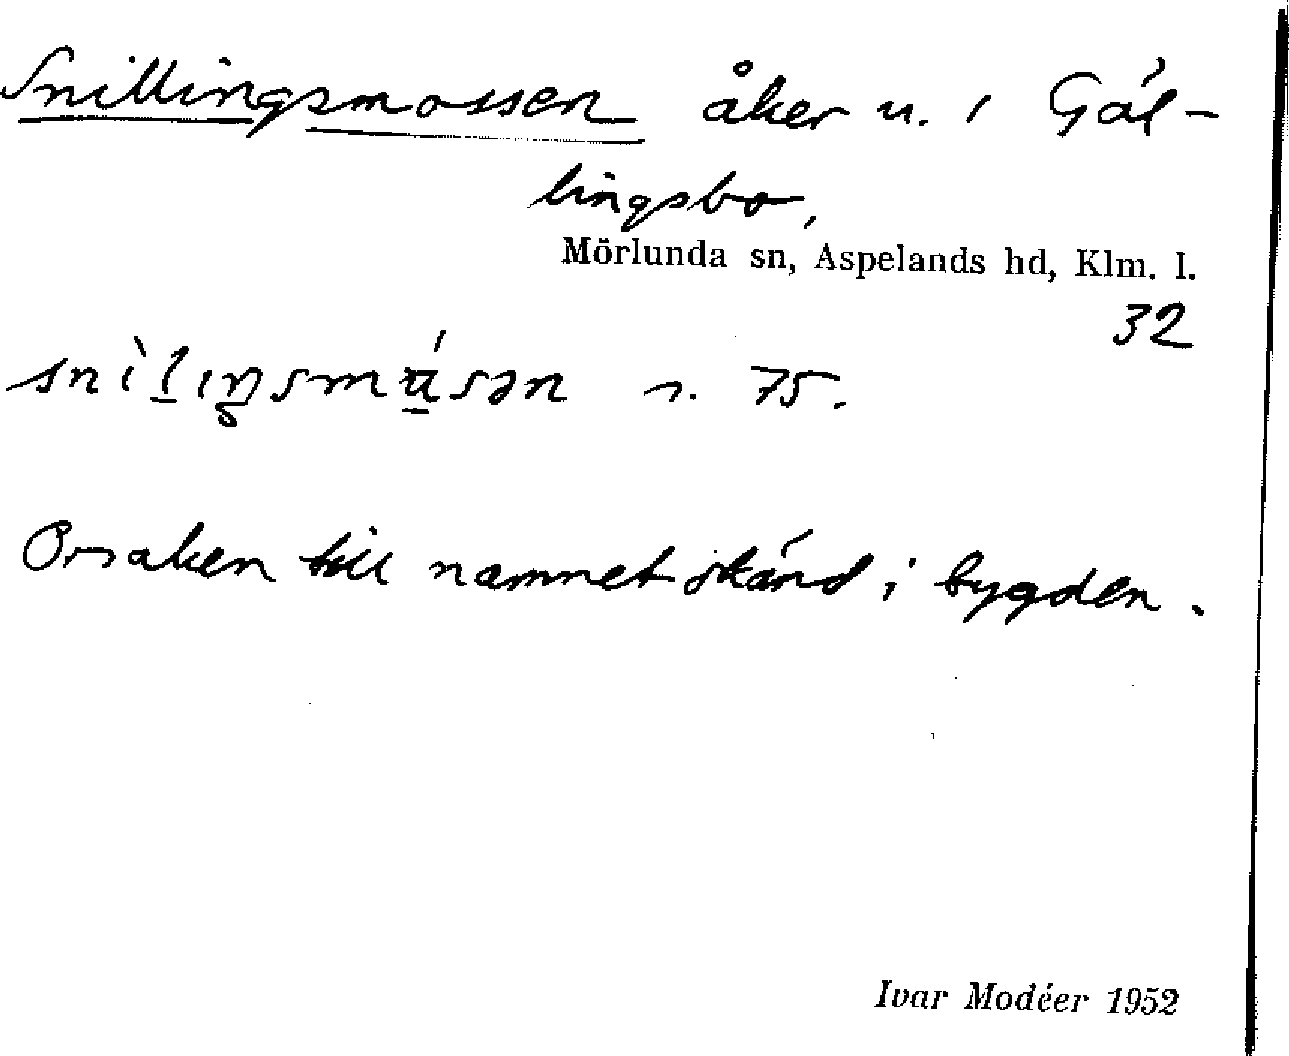 Snillingsmossen åker u. 1 Gál-
lingsbo,
Mörlunda sn, Aspelands hd, Klm. l.
32
s. 75.
Orsaken till namnet okänd i bygden.
Ivar Modéer 1952